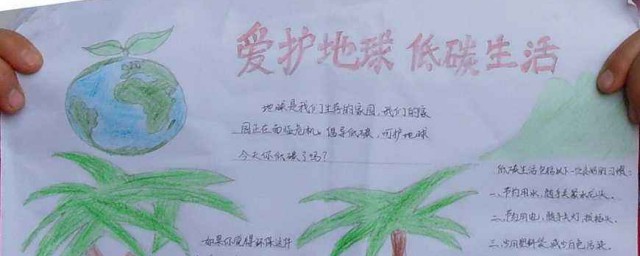 爱护地球 低碳生活
地球是我们生存的家园,我们的家
园正在面临危机。倡导低碳,呵护地球
今天你低碳了吗?
低碳生活包括以下一些良好的习惯:
一、节约用水,随手关紧水龙头。
二、节约用电,随手关灯,拔插头。
三、少用塑料袋,减少白色污染。
如果你觉得环保这件